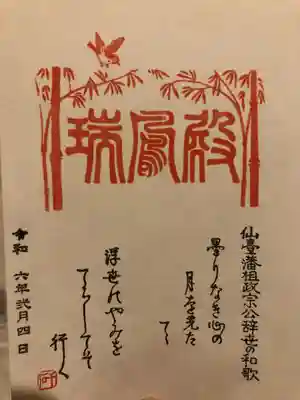 瑞鳳殿
仙臺藩祖政宗公辞世の和歌
曇りなき心の
月を先た
てゝ
浮世のやみを
てらしてそ
行く
令和 六年弐月四日